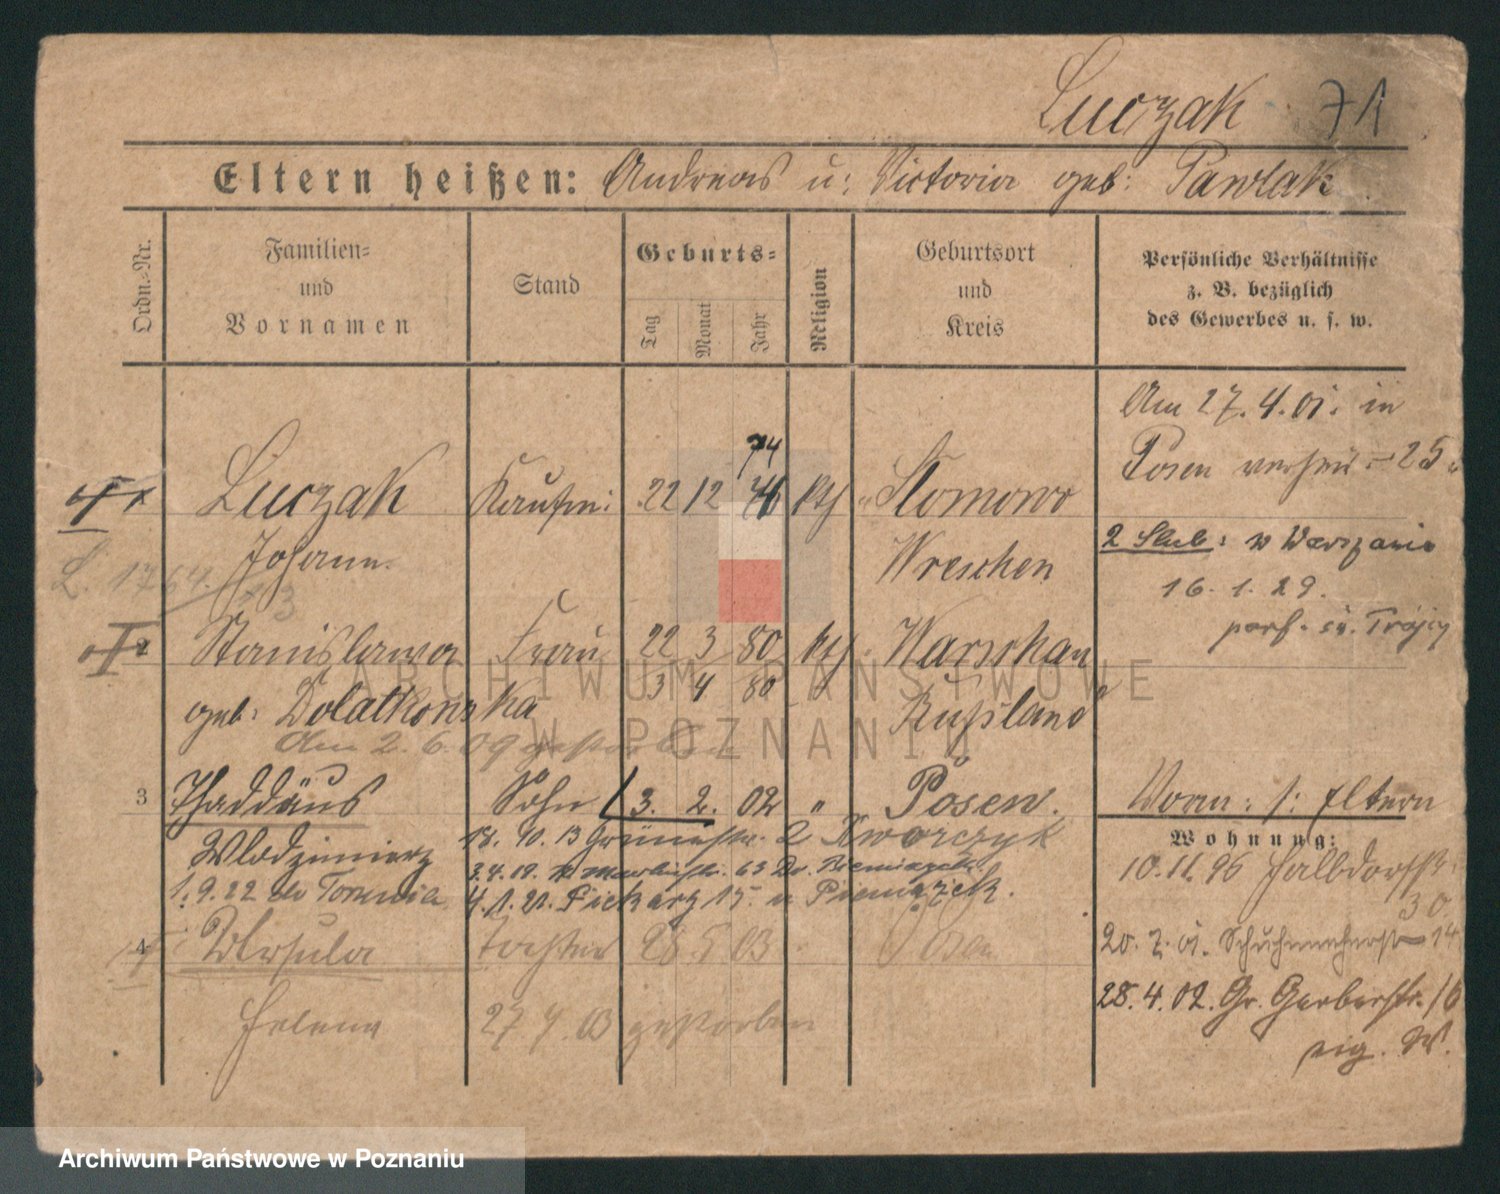 Luczak 71
Eltern heißen: Andreas u: Victoria geb: Pawlak.
Ordn.-Nr.
Familien-
und
Vornamen
Stand
Geburts-
Tag
Monat
Jahr
Religion
Geburtsort
und
Kreis
Persönliche Verhältnisse
z. B. bezüglich
des Gewerbes u. s. w.
Am 27. 4. 01. in
Posen verheir. 25
74
Luczak Kaufm: 22 12 kth Slomowo
Johann Wreschen
2 Slub: w Warszawie
16. 1. 29.
par. św. Trójcy
L. 1764
2 Stanislawa Frau 22 3 80 kth Warschau
3 4 80
geb: Dolatkowska Rußland
Am 2. 6. 09 gestorben
3 Thaddäus Sohn 3. 2. 02 " Posen. Vorm: s: Eltern
Wlodzimierz 18. 10. 13 Grünestr. 2 Kworczyk
63 Dr.
1. 9. 22 do Torunia 4. 1. 21. Piekary 15. u Pieniężek.
Wohnung:
10. 11. 96 Halbdorfstr
30
4 Ursula Tochter 28 5 03 Posen
20. 7. 01. Schuhmacherstr 14
28. 4. 02. Gr. Gerberstr. 16
Helena 27 7. 03 gestorben
eig. W.
ARCHIWUM PAŃSTWOWE
W POZNANIU
Archiwum Państwowe w Poznaniu